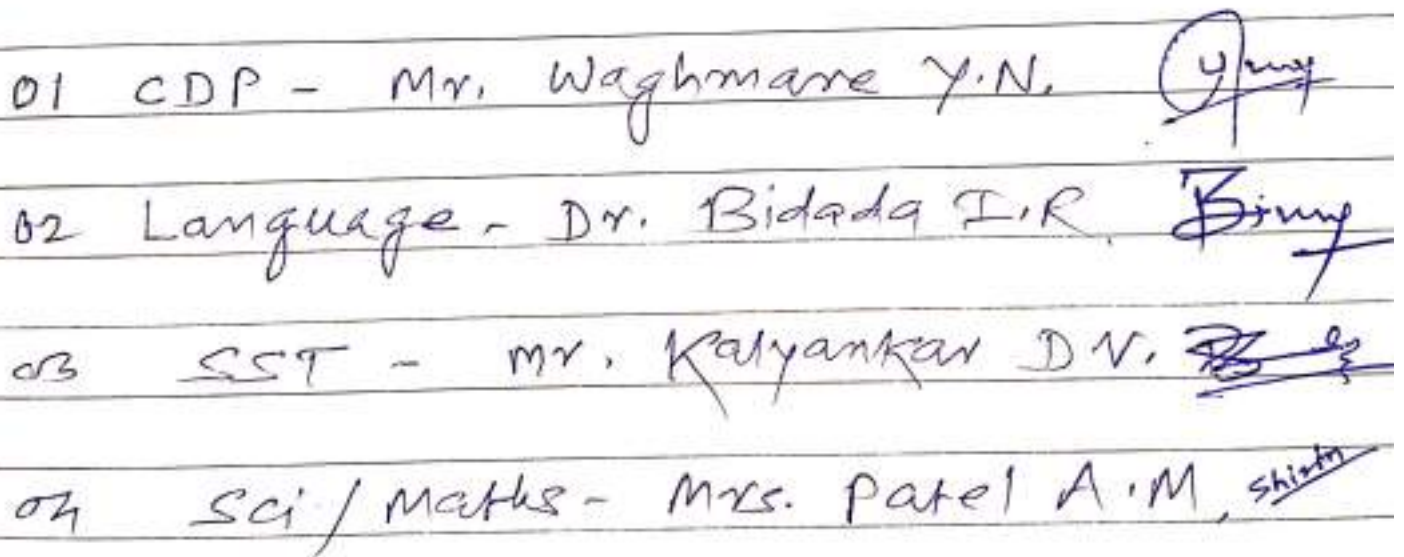 01 CDP - Mr. Waghmare Y.N.
02 Language - Dr. Bidada I.R.
03 SST - Mr. Kalyankar D.V.
04 Sci/Maths - Mrs. Patel A.M.